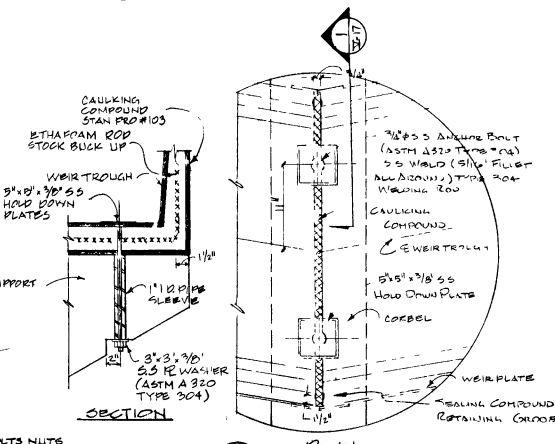 1
V-17
CAULKING
COMPOUND
STAN PRO #103
ETHAFOAM ROD
STOCK BUCK UP
WEIR TROUGH
5"x5"x3/8" S S
HOLD DOWN
PLATES
1 1/2"
PPORT
1" I.D. PIPE
SLEEVE
2"
3"x3"x3/8"
S.S PL WASHER
(ASTM A 320
TYPE 304)
SECTION
LTS NUTS
3/4" ø S S ANCHOR BOLT
(ASTM A320 TYPE 304)
S S WELD (5/16" FILLET
ALL AROUND) TYPE 304
WELDING ROD
CAULKING
COMPOUND
℄ WEIR TROUGH
5"x5"x3/8" S S
HOLD DOWN PLATE
CORBEL
WEIR PLATE
SEALING COMPOUND
RETAINING GROOVE
1 1/2"